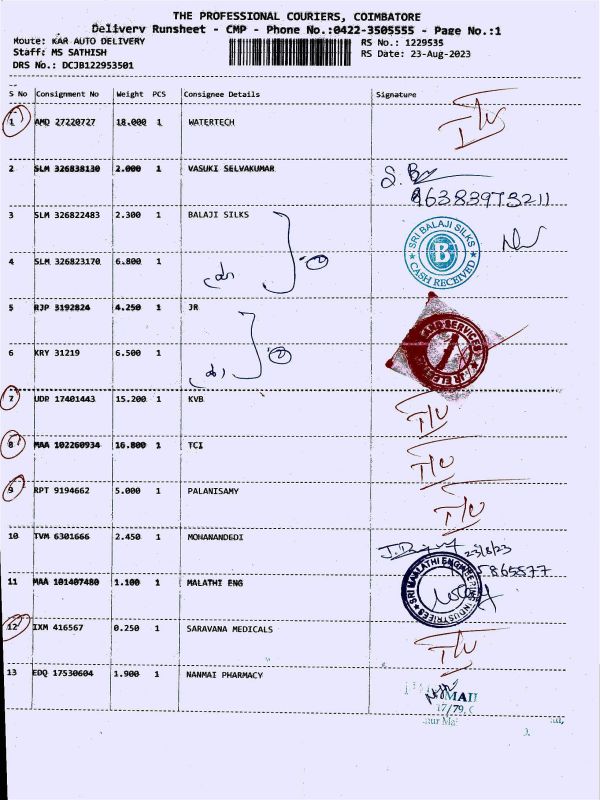 THE PROFESSIONAL COURIERS, COIMBATORE
Delivery Runsheet - CMP - Phone No.:0422-3505555 - Page No.:1
Route: KAR AUTO DELIVERY RS No.: 1229535
Staff: MS SATHISH RS Date: 23-Aug-2023
DRS No.: DCJB122953501
S No Consignment No Weight PCS Consignee Details Signature
1 AMD 27220727 18.000 1 WATERTECH
2 SLM 326838130 2.000 1 VASUKI SELVAKUMAR
96383973211
3 SLM 326822483 2.300 1 BALAJI SILKS
SRI BALAJI SILKS
B
CASH RECEIVED
4 SLM 326823170 6.800 1
5 RJP 3192824 4.250 1 JR
6 KRY 31219 6.500 1
7 UDR 17401443 15.200 1 KVB
8 MAA 102260934 16.800 1 TCI
9 RPT 9194662 5.000 1 PALANISAMY
10 TVM 6301666 2.450 1 MOHANANDEDI
23/8/23
865577
11 MAA 101407480 1.100 1 MALATHI ENG
SRI MAALATHI ENGINEERING INDUSTRIES
12 IXM 416567 0.250 1 SARAVANA MEDICALS
13 EDQ 17530604 1.900 1 NANMAI PHARMACY
17/79,